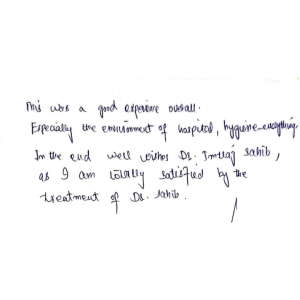 This was a good experience overall.
Especially the environment of hospital, hygiene-everything.
In the end well wishes Dr. Imtiaz Sahib,
as I am totally satisfied by the
treatment of Dr. Sahib.